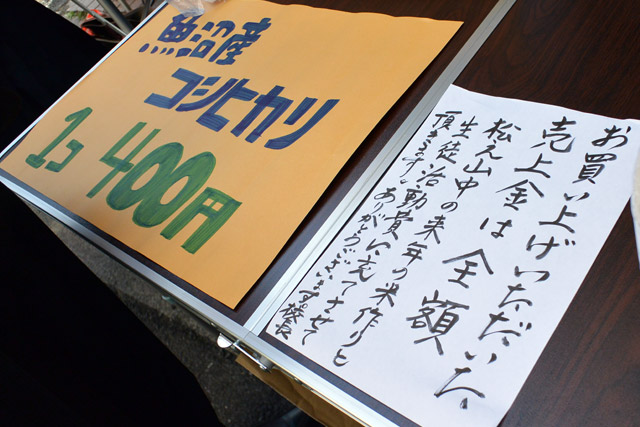 魚沼産
コシヒカリ
1コ 400円
お買い上げいただいた
売上金は全額
松之山中の来年の米作りと
生徒活動費に充てさせて
頂きます。ありがとうございます。校長